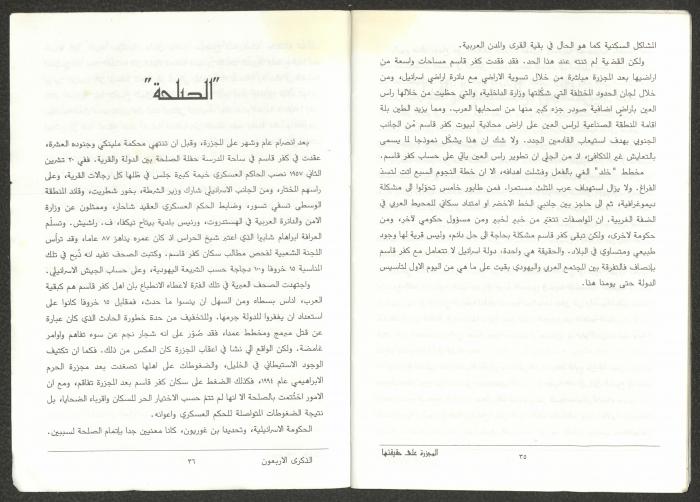 المشاكل السكنية كما هو الحال في بقية القرى والمدن العربية.
ولكن القضية لم تنته عند هذا الحد. فقد فقدت كفر قاسم مساحات واسعة من
اراضيها بعد المجزرة مباشرة من خلال تسوية الاراضي مع دائرة اراضي اسرائيل، ومن
خلال لجان الحدود المختلفة التي شكلتها وزارة الداخلية، والتي حظيت من خلالها راس
العين باراض اضافية صودر جزء كبير منها من اصحابها العرب. ومما يزيد الطين بلة
اقامة المنطقة الصناعية لراس العين على اراض محاذية لبيوت كفر قاسم من الجانب
الجنوبي بهدف استيعاب القادمين الجدد. ولا شك ان هذا يشكل نموذجا لما يسمى
بالتعايش غير المتكافئ، اذ من الجلي ان تطوير راس العين ياتي على حساب كفر قاسم.
مخطط "خلد" الغي بالفعل وفشلت اهدافه، الا ان خطة النجوم السبع اتت لتسد
الفراغ. ولا يزال استهداف عرب المثلث مستمرا. فمن طابور خامس تحولوا الى مشكلة
ديموغرافية، ثم الى حاجز بين جانبي الخط الاخضر او امتداد سكاني للمحيط العربي في
الضفة الغربية. ان المواصفات تتغير من خبير لخبير ومن مسؤول حكومي لآخر، ومن
حكومة لاخرى، ولكن تبقى كفر قاسم مشكلة بحاجة الى حل دائم، وليس قرية لها وجود
طبيعي ومتساوي في البلاد. والحقيقة هي واحدة، دولة اسرائيل لا تتعامل مع كفر قاسم
بإنصاف فالتفرقة بين المجتمع العربي واليهودي بقيت على ما هي من اليوم الاول لتاسيس
الدولة حتى يومنا هذا.
المجزرة على حقيقتها
٣٥
"الصلحة"
بعد انصرام عام وشهر على المجزرة، وقبل ان تنتهي محكمة ملينكي وجنوده العشرة،
عقدت في كفر قاسم في ساحة المدرسة حفلة الصلحة بين الدولة والقرية. ففي ٢٠ تشرين
الثاني ١٩٥٧ نصب الحاكم العسكري خيمة كبيرة جلس في ظلها كل رجالات القرية، وعلى
راسهم المختار، ومن الجانب الاسرائيلي شارك وزير الشرطة، بخور شطريت، وقائد المنطقة
الوسطى تسفي تسور، وضابط الحكم العسكري العقيد شاحار، وممثلون عن وزارة
الامن والدائرة العربية في الهستدروت، ورئيس بلدية بيتاح تيكفا، ف. راشيش. وتسلم
العرافة ابراهام شابيرا الذي اعتبر شيخ الحراس اذ كان عمره يناهز ٨٧ عاما، وقد ترأس
اللجنة الشعبية لفحص مطالب سكان كفر قاسم. وكتبت الصحف تفيد انه ذُبح في تلك
المناسبة ١٥ خروفا و١٠٠ دجاجة حسب الشريعة اليهودية، وعلى حساب الجيش الاسرائيلي.
واجتهدت الصحف العبرية في تلك الفترة لاعطاء الانطباع بان اهل كفر قاسم هم كبقية
العرب، اناس بسطاء ومن السهل ان ينسوا ما حدث، فمقابل ١٥ خروفا كانوا على
استعداد ان يغفروا للدولة جرمها. وللتخفيف من حدة خطورة الحادث الذي كان عبارة
عن قتل مبيح ومخطط عمدا، فقد صُوّر على انه شجار نجم عن سوء تفاهم واوامر
غامضة. ولكن الواقع الي نشا في اعقاب المجزرة كان العكس من ذلك. فكما ان تكثيف
الوجود الاستيطاني في الخليل، والضغوطات على اهلها تصعّدت بعد مجزرة الحرم
الابراهيمي عام ١٩٩٤، فكذلك الضغط على سكان كفر قاسم بعد المجزرة تفاقم، ومع ان
الامور اختُتمت بالصلحة الا انها لم تتم حسب الاختيار الحر للسكان واقرباء الضحايا، بل
نتيجة الضغوطات المتواصلة للحكم العسكري واعوانه.
الحكومة الاسرائيلية، وتحديدا بن غوريون، كانا معنيين جدا بإتمام الصلحة لسببين.
٣٦
الذكرى الاربعون